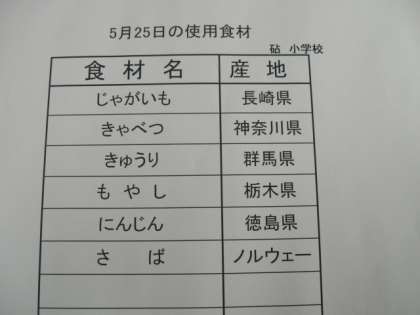 5月25日の使用食材
砧 小学校
食材名 産地
じゃがいも 長崎県
きゃべつ 神奈川県
きゅうり 群馬県
もやし 栃木県
にんじん 徳島県
さば ノルウェー